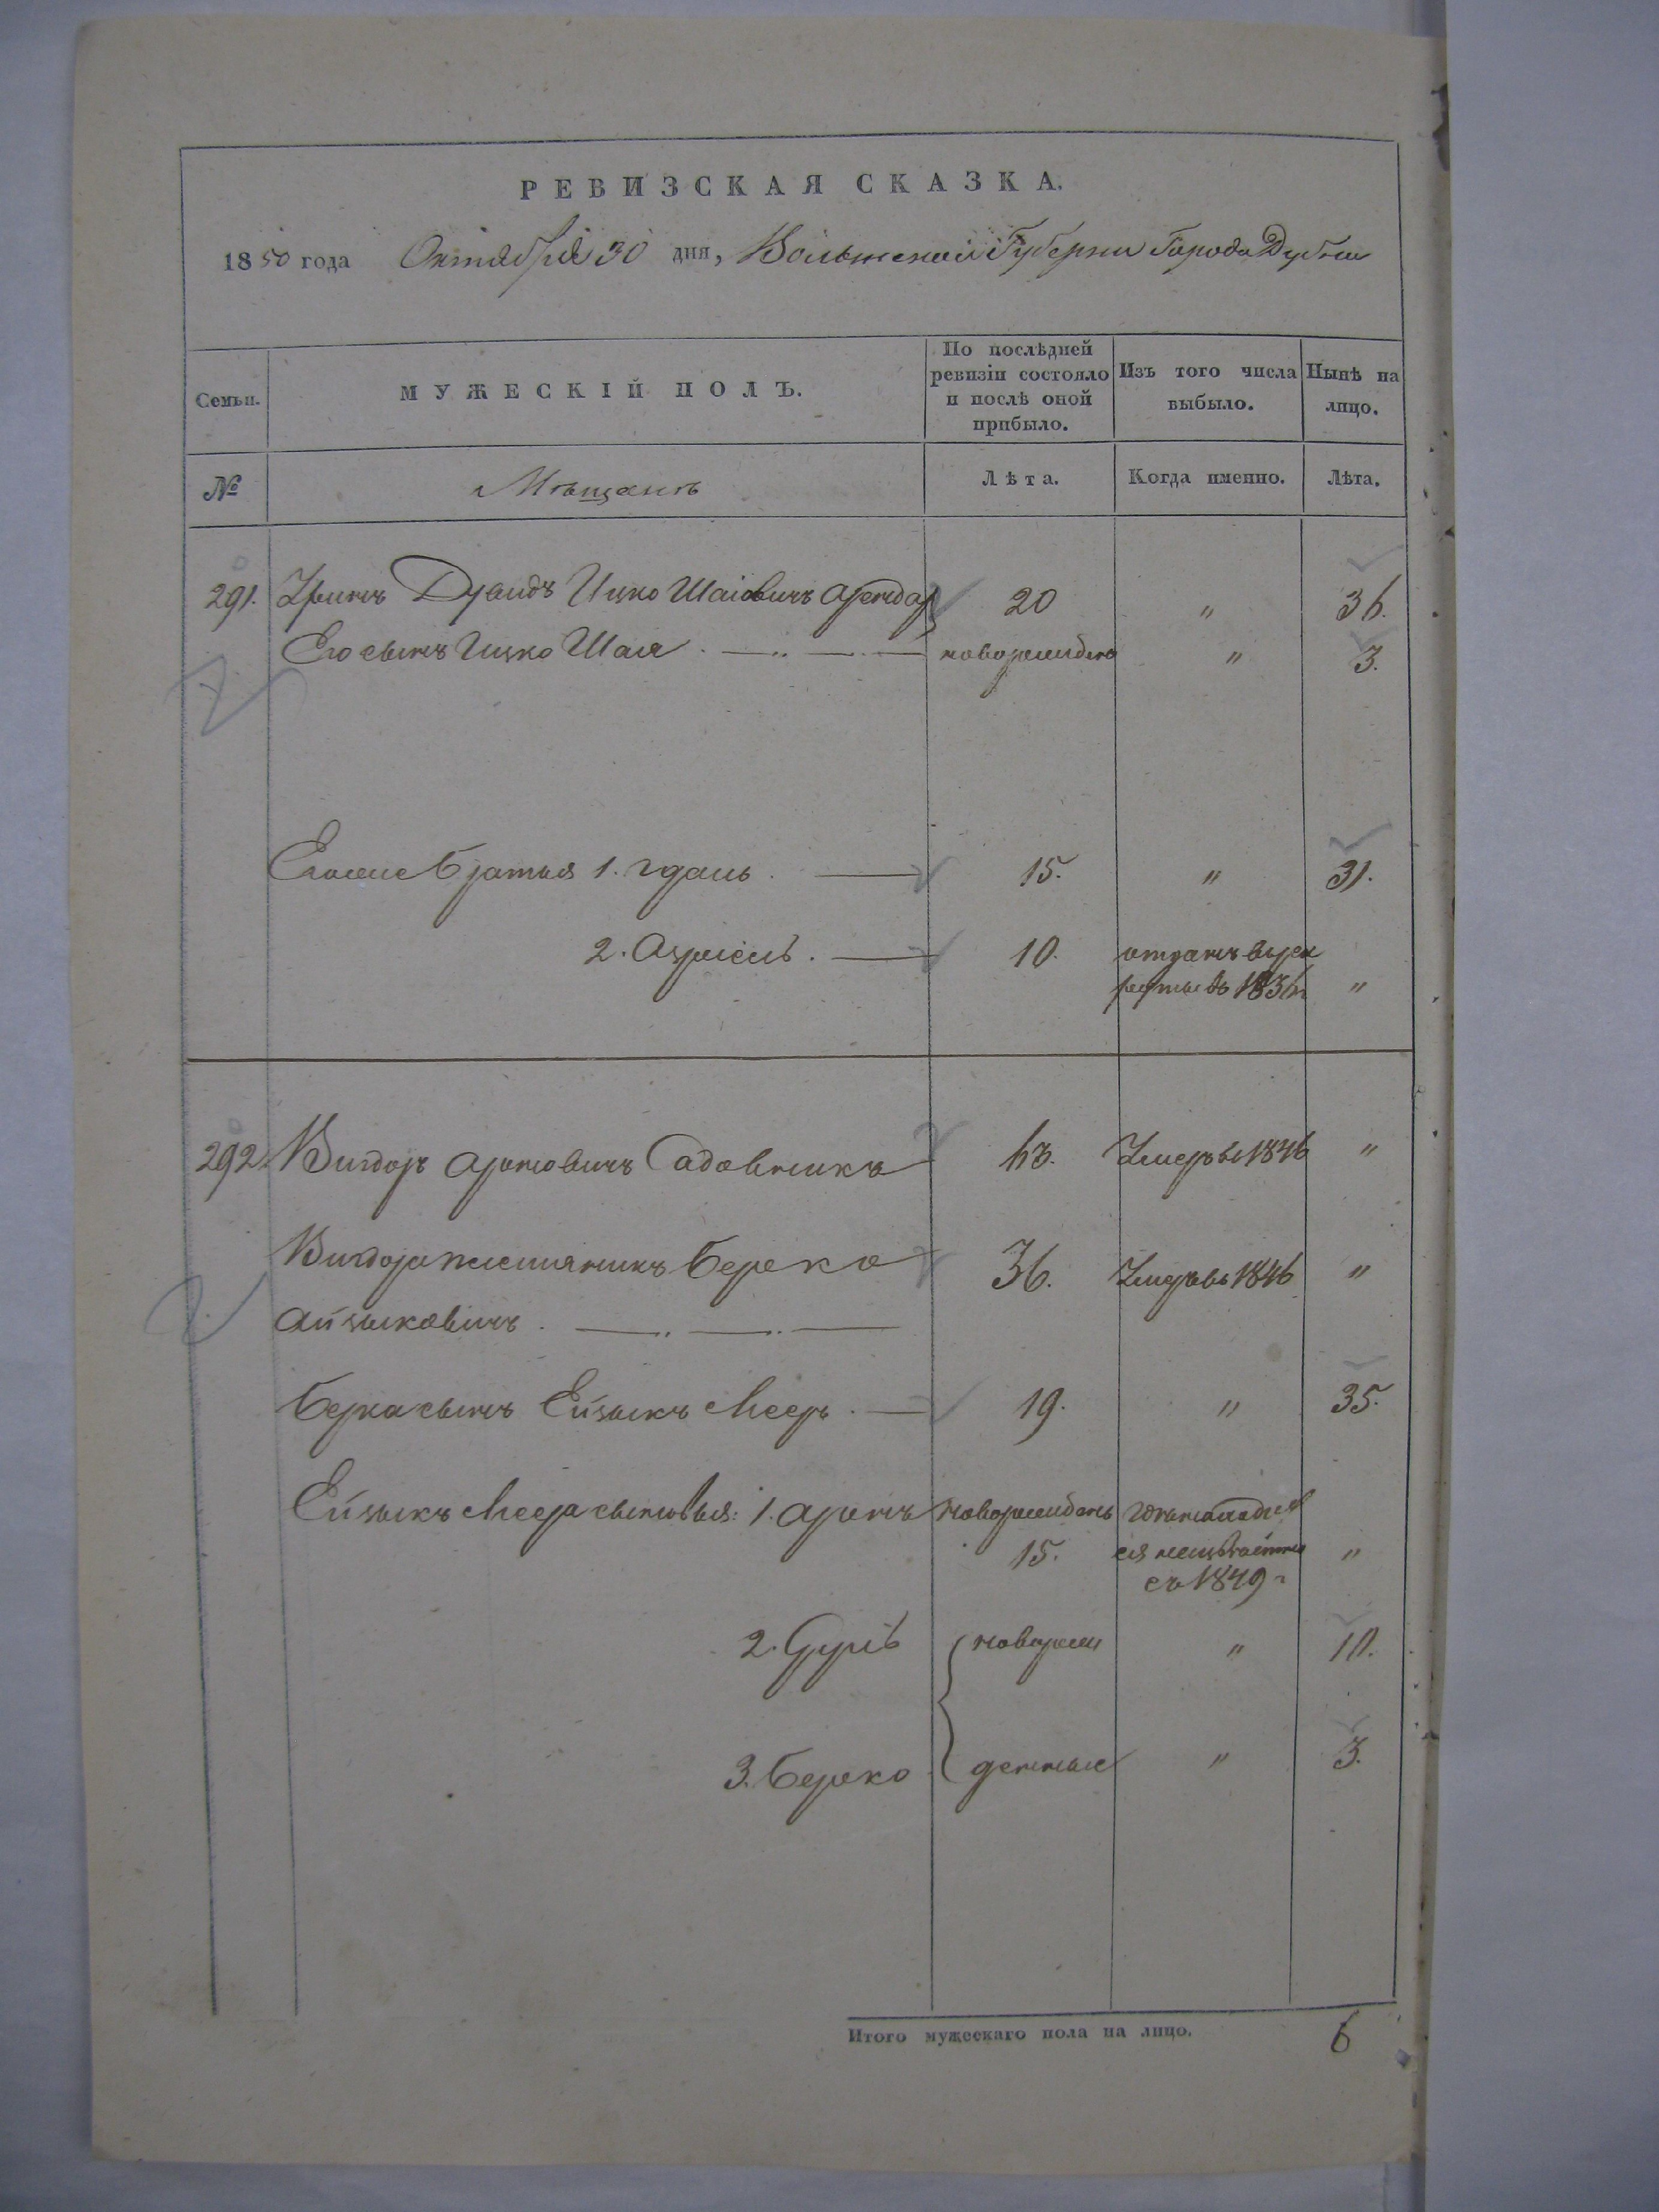 РЕВИЗСКАЯ СКАЗКА.
1850 года Октября 30 дня, Волынской Губернии Города Дубна
Семьи.
МУЖЕСКІЙ ПОЛЪ.
По послѣдней ревизіи состояло и послѣ оной прибыло.
Изъ того числа выбыло.
Нынѣ на лицо.
№
Мѣщанъ
Лѣта.
Когда именно.
Лѣта.
291. Дувидъ Ицко Шаіовичъ 20 " 36.
Его сынъ Ицко Шая новорожденъ " 3.
Егоже братья 1. 15. " 31.
2. Азріель. 10. отданъ въ рек
руты въ 1836 г "
292. Вигдоръ Ароновичъ Садовникъ 63. Умеръ въ 1846 "
Вигдора племянникъ Берко 36. Умеръ въ 1846 "
Айзыковичъ.
Берка сынъ Ейзыкъ Меер. 19. " 35.
Ейзыкъ Меера сыновья: 1. Аронъ новорожденъ
15. "
съ 1849 г
2. новорож " 10.
3. Берко денные " 3.
Итого мужескаго пола на лицо. 6